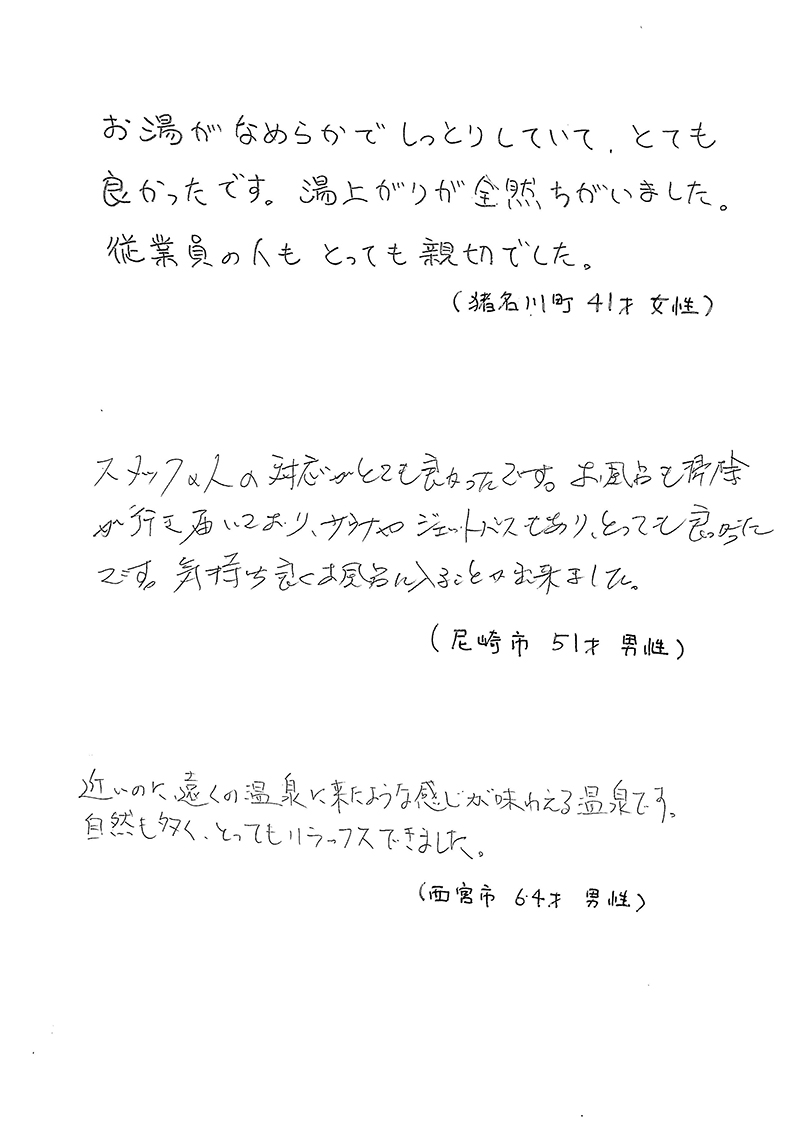 お湯がなめらかでしっとりしていて、とても
良かったです。湯上がりが全然ちがいました。
従業員の人もとっても親切でした。
(猪名川町 41才 女性)
スタッフの人の対応がとても良かったです。お風呂も掃除
が行き届いており、サウナやジェットバスもあり、とっても良かった
です。気持ち良くお風呂に入ることが出来ました。
(尼崎市 51才 男性)
近いのに、遠くの温泉に来たような感じが味わえる温泉です。
自然も多く、とってもリラックスできました。
(西宮市 64才 男性)